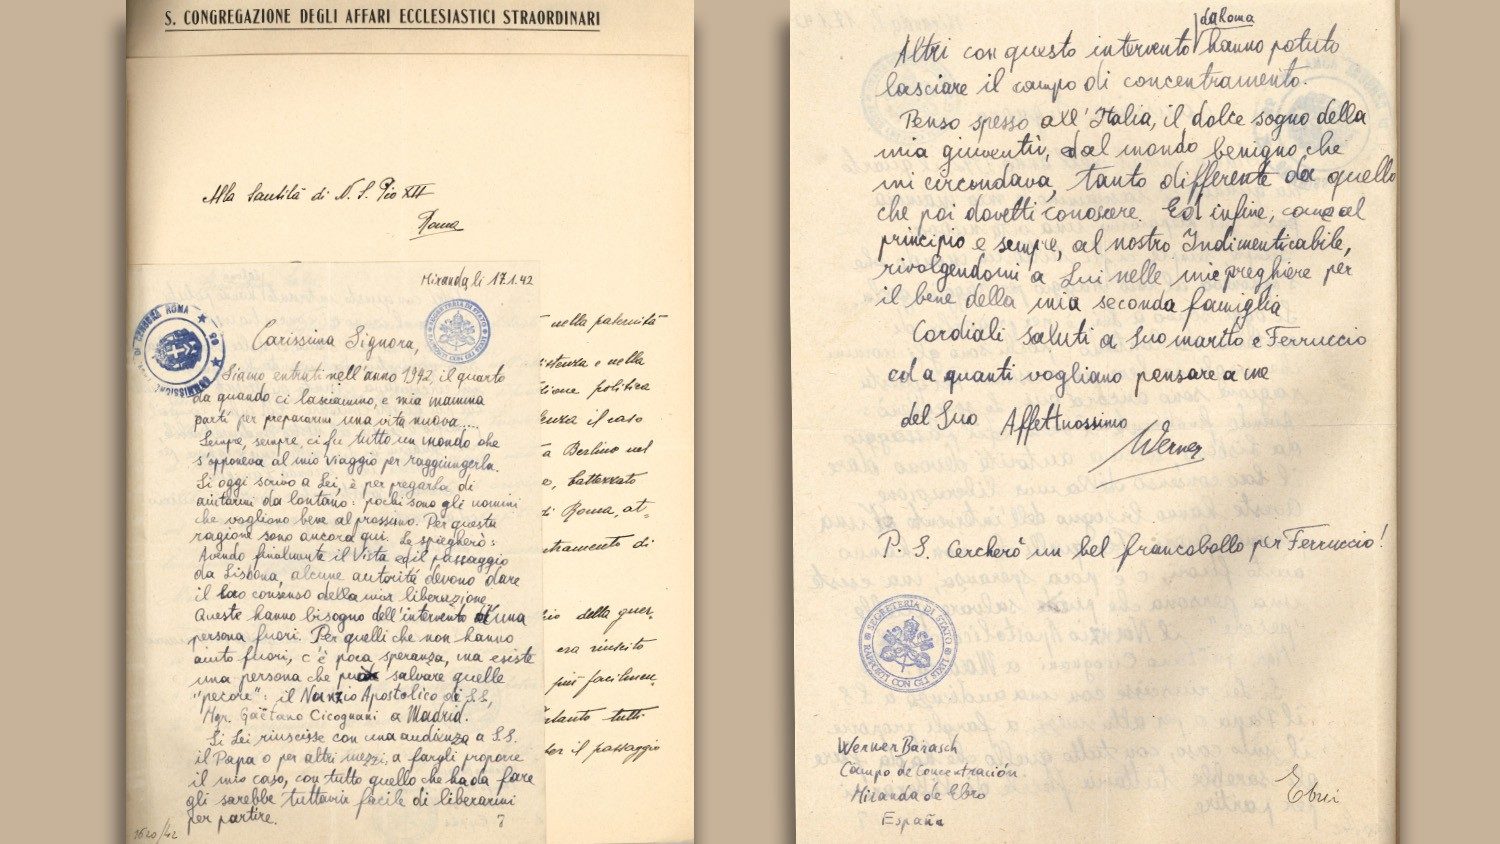 S. CONGREGAZIONE DEGLI AFFARI ECCLESIASTICI STRAORDINARI
Alla Santità di N. S. Pio XII
Roma
Miranda, li 17.1.42
Carissima Signora,
Siamo entrati nell'anno 1942, il quarto
da quando ci lasciammo, e mia mamma
partì per prepararmi una vita nuova....
Sempre, sempre, ci fu tutto un mondo che
s'opponeva al mio viaggio per raggiungerla.
Si oggi scrivo a Lei, è per pregarla di
aiutarmi da lontano: pochi sono gli uomini
che vogliono bene al prossimo. Per questa
ragione sono ancora qui. Le spiegherò:
Avendo finalmente il Vista ed il passaggio
da Lisbona, alcune autorità devono dare
il loro consenso della mia liberazione.
Queste hanno bisogno dell'intervento d'una
persona fuori. Per quelli che non hanno
aiuto fuori, c'è poca speranza, ma esiste
una persona che può salvare quelle
"pecore": il Nunzio Apostolico di S.S.
Mgr. Gaëtano Cicognani a Madrid.
Si Lei riuscisse con una audienza a S.S.
il Papa o per altri mezzi, a fargli proporre
il mio caso, con tutto quello che ha da fare
gli sarebbe tuttavia facile di liberarmi
per partire.
1620/42
nella paternità
istenza e nella
zione politica
enza il caso
a Berlino nel
e, battezzato
di Roma, at-
tramento di
io della guer-
era riuscito
più facilmen-
tanto tutti
per il passaggio
da Roma
Altri con questo intervento hanno potuto
lasciare il campo di concentramento.
Penso spesso all'Italia, il dolce sogno della
mia gioventù, dal mondo benigno che
mi circondava, tanto differente da quello
che poi dovetti conoscere. Ed infine, come al
principio e sempre, al nostro Indimenticabile,
rivolgendomi a Lui nelle mie preghiere per
il bene della mia seconda famiglia
Cordiali saluti a Suo marito e Ferruccio
ed a quanti vogliano pensare a me
del Suo Affettuossimo
Werner
P. S. Cercherò un bel francobollo per Ferruccio!
SEGRETERIA DI STATO
RAPPORTI CON GLI STATI
Werner Barasch
Campo de Concentración
Miranda de Ebro
España
Ebrei